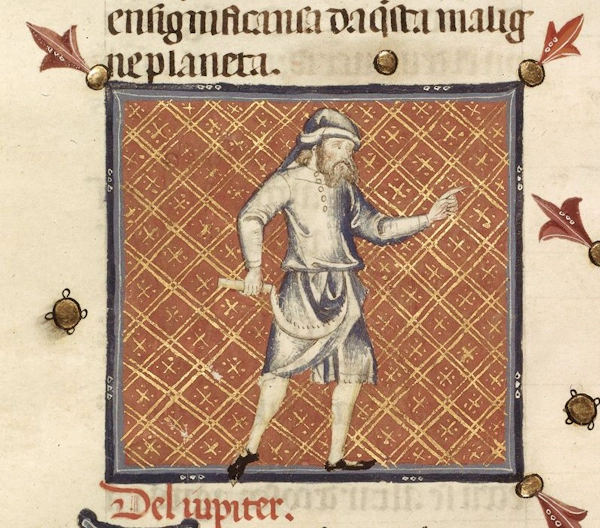 en significansa daq̃sta malig
ne planeta.
Del iupiter.